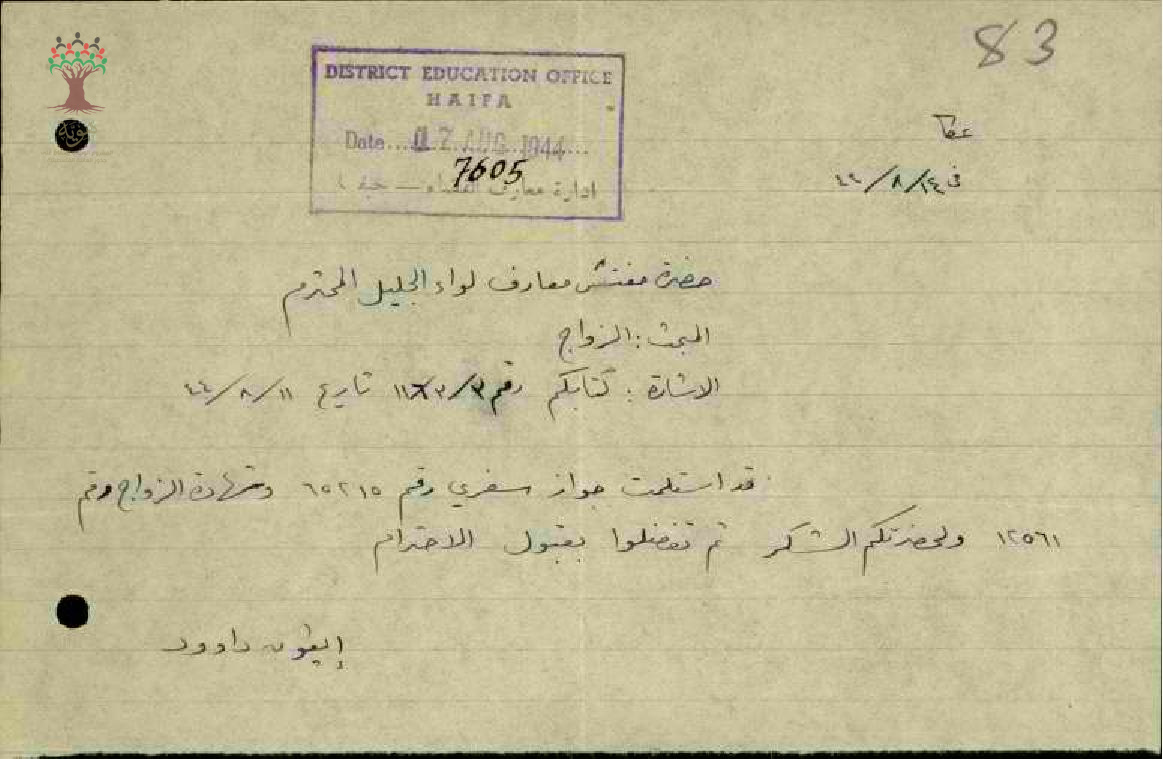 83
DISTRICT EDUCATION OFFICE
HAIFA
Date 17 AUG 1944
7605
ادارة معارف القضاء — حيفا
عكا
في ١٤/٨/٤٤
حضرة مفتش معارف لواء الجليل المحترم
المبحث: الزواج
الاشارة: كتابكم رقم تاريخ ١١/٨/٤٤
قد استلمت جواز سفري رقم ٦٥٢١٥ وشهادة الزواج رقم
١٢٥٦١ ولحضرتكم الشكر ثم تفضلوا بقبول الاحترام
داوود